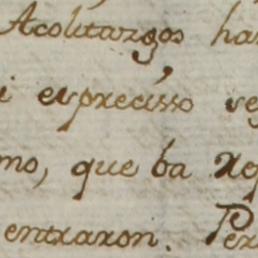 Acolitazgos ha
i es precisso se
mo, que ba Rop
entraron. Per